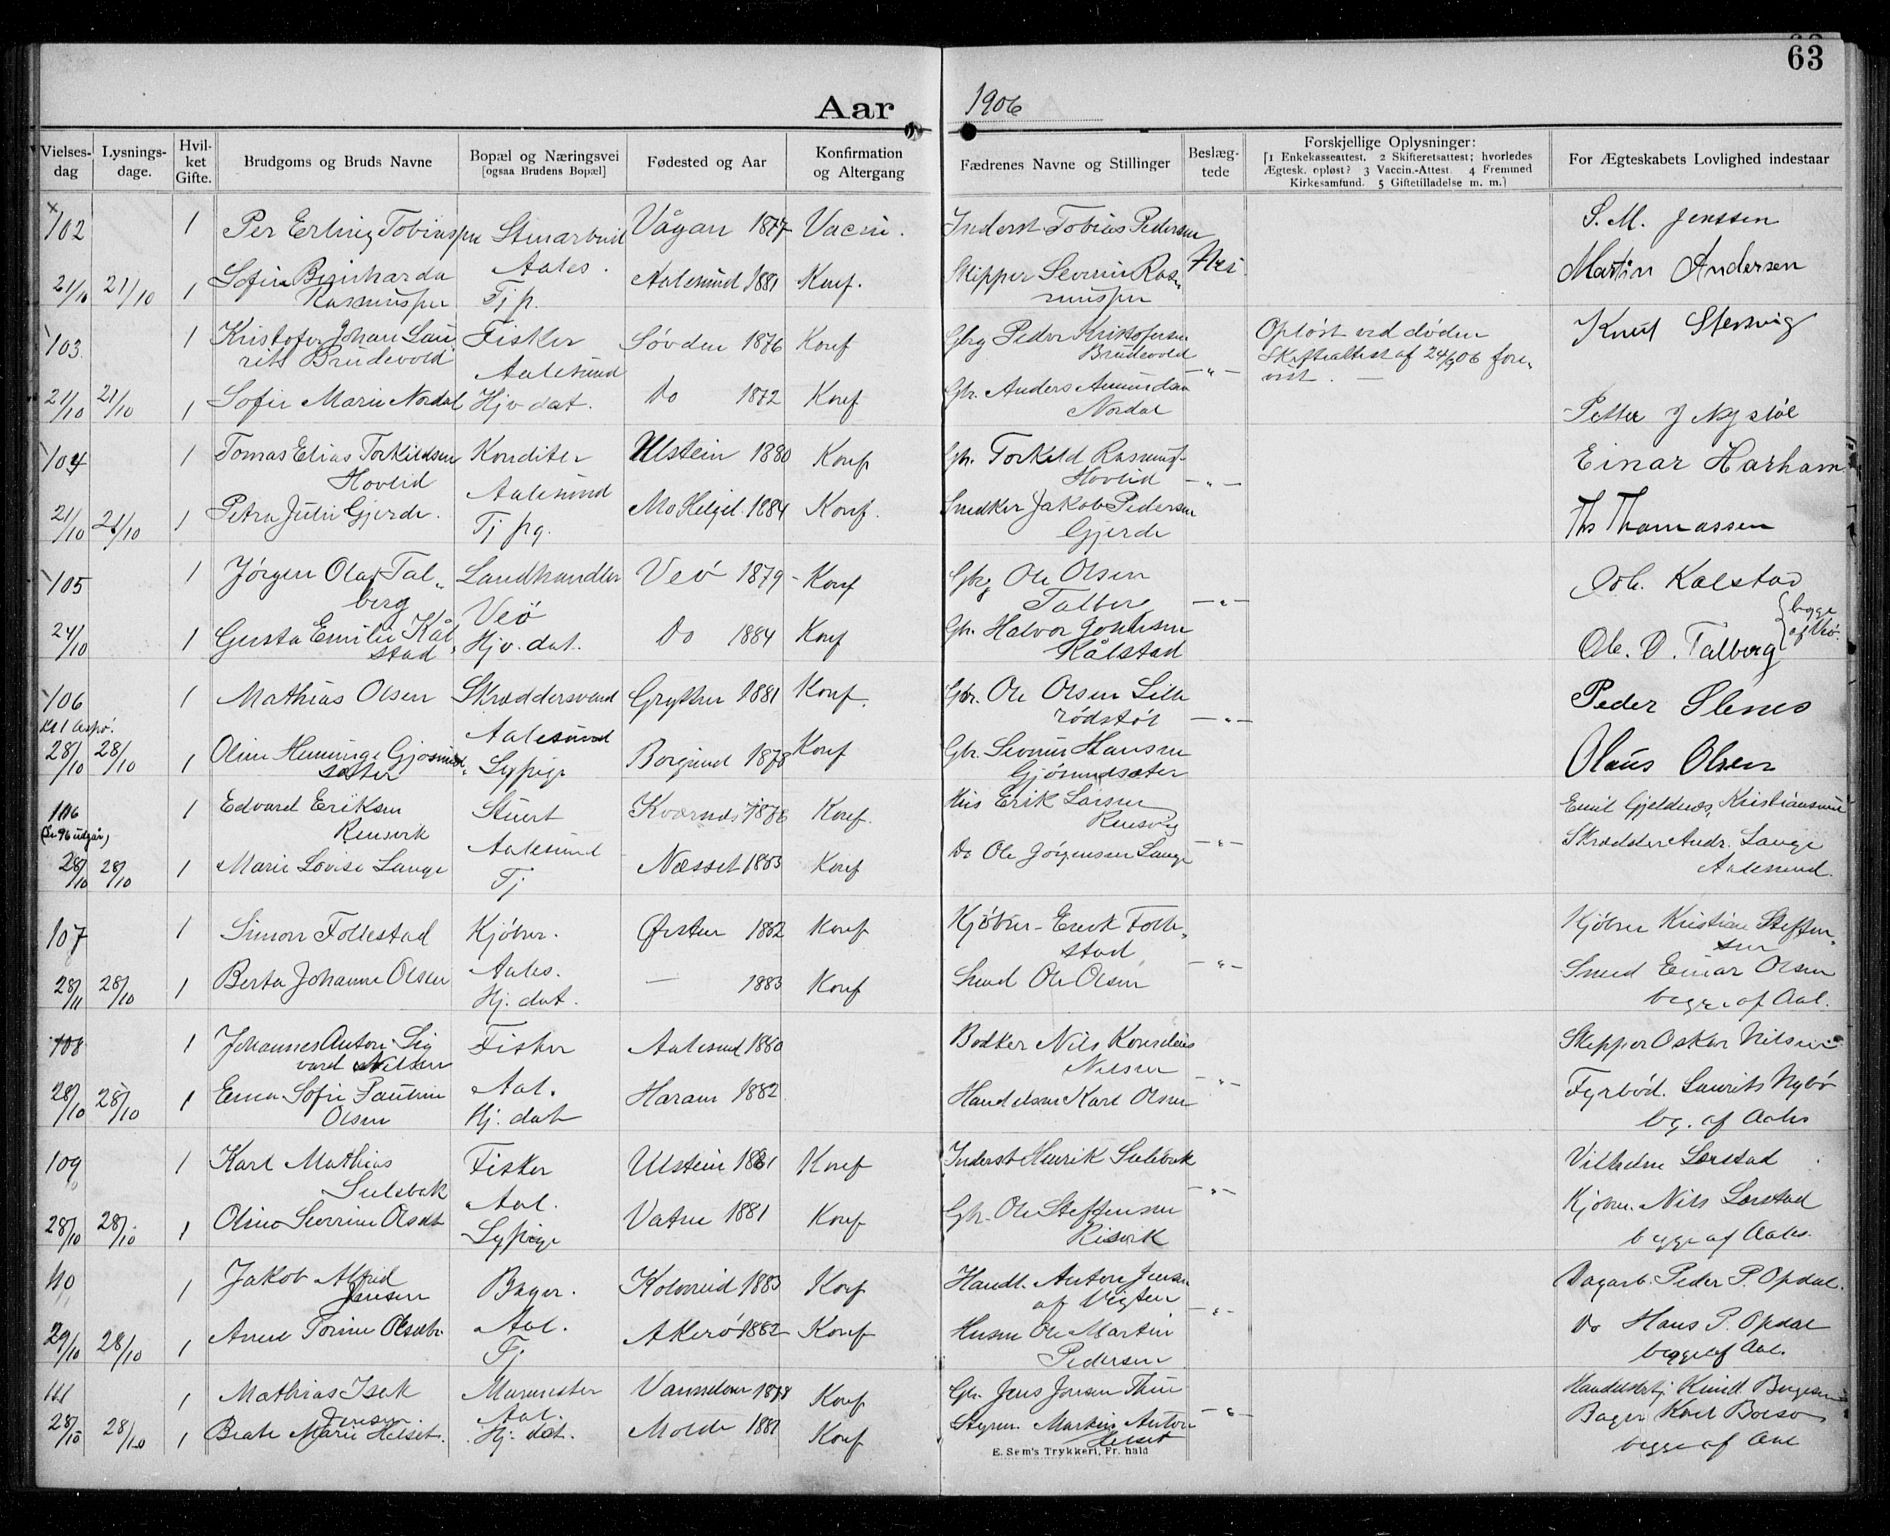 63
Aar 1906
Vielsesdag
Lysningsdage.
Hvilket Gifte.
Brudgoms og Bruds Navne
Bopæl og Næringsvei
[ogsaa Brudens Bopæl]
Fødested og Aar
Konfirmation og Altergang
Fædrenes Navne og Stillinger
Beslægtede
Forskjellige Oplysninger:
[1 Enkekasseattest. 2 Skifteretsattest; hvorledes
Ægtesk. opløst? 3 Vaccin.-Attest. 4 Fremmed
Kirkesamfund. 5 Giftetilladelse m. m.]
For Ægteskabets Lovlighed indestaar
102 1 Per Erling Vågan 1877 Vacin. Inderst Tobias Pedersen S. M. Jenssen
Aales. Martin Andersen
21/10 21/10 1 Sofie Bernharda Rasmussen Tj p. Aalesund 1881 Konf. Skipper Severin Rasmussen
103 1 Kristofer Johan Laurits Brudevold Fisker Søvden 1876 Konf Gbr Peder Kristofersen Brudevold Opløst ved døden Knut Stensvig
Aalesund Skifteattest af 24/9 06 forevist.
21/10 21/10 1 Sofie Marie Nordal Hjv. dat. Do 1872 Konf Gbr. Anders Amundsen Nordal Petter J Nystøl
104 1 Tomas Elias Torkildsen Hovlid Konditer Ulstein 1880 Konf Gbr. Torkild Rasmus. Hovlid Einar Harham
Aalesund
21/10 21/10 1 Petra Julie Gjerde. Tj pg. Mo Helgel. 1884 Konf. Snedker Jakob Pedersen Gjerde Ths Thomassen
105 1 Jørgen Olaf Talberg Landhandler Veö 1879 Konf Gbr Ole Olsen Talberg Joh. Kalstad
Veö begge af Veø.
24/10 1 Gusta Emilie Kålstad Hjv. dat. Do 1884 Konf Gbr. Halvor Kålstad Ole. O. Talberg
106 1 Mathias Olsen Skræddersvend Grytten 1881 Konf. Gbr. Ole Olsen Peder Slenes
Aalesund
28/10 28/10 1 Oline Henninge Gjøsundsæter Sypige Borgund 1878 Konf Gbr. Severin Hansen Gjøsundsæter Olaus Olsen
106 1 Edvard Eriksen Rensvik Stuert Kværnes 1876 Konf. Hus Erik Larsen Rensvig Emil Gjeldnes, Kristiansund
(Se 96 udgår)
Aalesund Skrædder Andr. Lange
28/10 28/10 1 Marie Lovise Lange Tj Næsset 1883 Konf Do Ole Jørgensen Lange Aalesund.
107 1 Simon Follestad Kjøbm. Ørsten 1882 Konf Kjøbm. Erik Follestad Kjøbm Kristian Steffensen
Aales.
28/11 28/10 1 Berta Johanne Olsen Hj. dat. — 1883 Konf Smed Ole Olsen Smed Einar Olsen
begge af Aal.
108 1 Johannes Anton Sigvard Nilsen Fisker Aalesund 1880 Bødker Nils Kornelius Nilsen Skipper Oskar Nilsen
Aal.
28/10 28/10 1 Emma Sofie Pauline Olsen Hj. dat Haram 1882. Handelsm Karl Olsen Fyrbød. Laurits Nybø
bg. af Aales
109 1 Karl Mathias Sulebak Fisker Ulstein 1881 Konf Inderst Henrik Sulebak Vilhelm Lorstad
Aal.
28/10 28/10 1 Oline Severine Olsdt Sypige Vatne 1881 Konf Gbr. Ole Steffensen Risvik Kjøbm. Nils Lorstad
begge af Aales.
110 1 Jakob Alfred Jensen Bager. Kolvereid 1883 Konf Handl. Anton Jensen af Vigten Dagarb. Peder P. Opdal.
Aal.
29/10 28/10 1 Anne Tomine Olsdtr. Tj Akerø 1882 Konf Husm Ole Martin Pedersen Do Hans P. Opdal
begge af Aal.
111 1 Mathias Isak Jensen. Murmester 1878 Konf Gbr. Jens Jonsen
Aal.
28/10 28/10 1 Beate Marie Helset. Hj. dat. Molde 1881 Konf Styrm. Martin Anton Helset Bager
begge af Aal
E. Sem's Trykkeri, Fr. hald